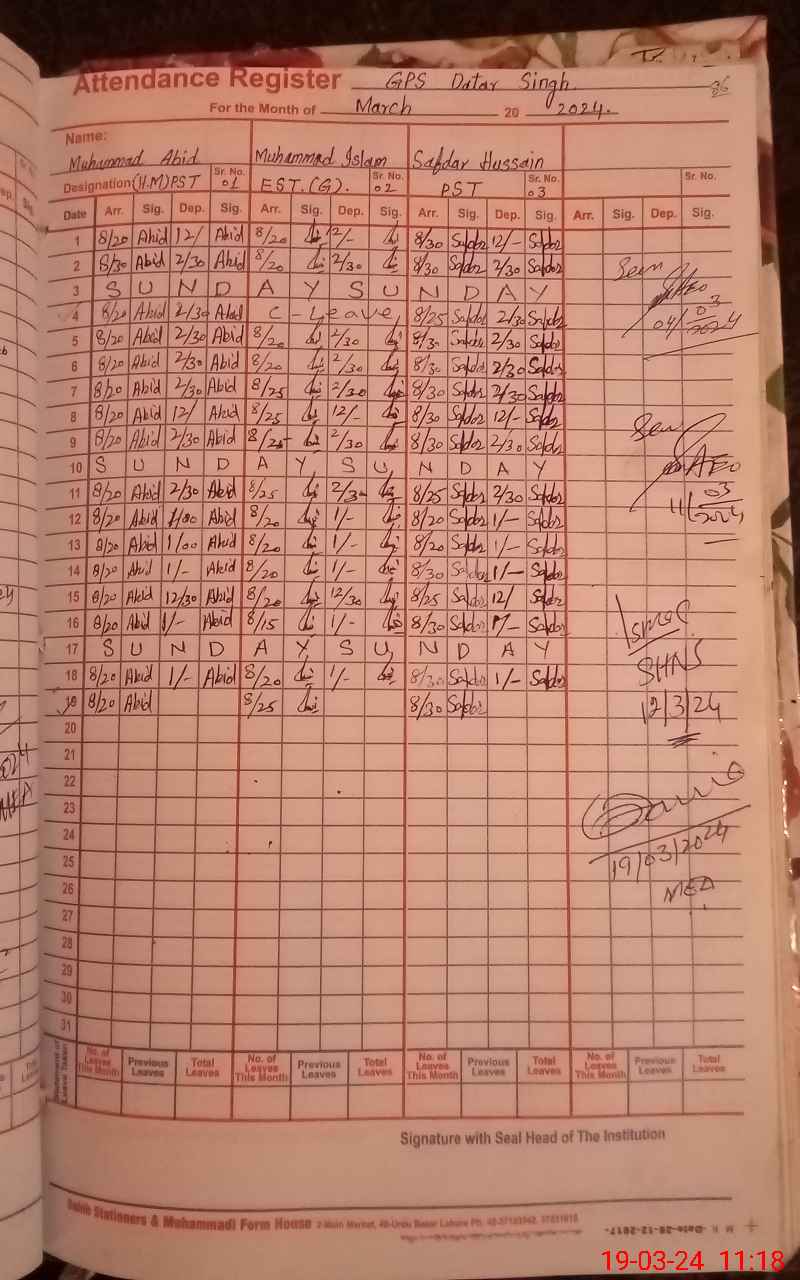 86
Attendance Register GPS Datar Singh
For the Month of March 20 2024.
Name:
Muhammad Abid Muhammad Islam Safdar Hussain
Designation (H.M) PST Sr. No. 01 EST.(G). Sr. No. 02 PST Sr. No. 03 Sr. No.
Date Arr. Sig. Dep. Sig. Arr. Sig. Dep. Sig. Arr. Sig. Dep. Sig. Arr. Sig. Dep. Sig.
1 8/20 Abid 12/ Abid 8/20 12/- 8/30 Safdar 12/- Safdar
2 8/30 Abid 2/30 Abid 8/20 2/30 8/30 Safdar 2/30 Safdar
3 S U N D A Y S U N D A Y
4 8/20 Abid 2/30 Abid C-Leave, 8/25 Safdar 2/30 Safdar
5 8/20 Abid 2/30 Abid 8/20 2/30 8/30 Safdar 2/30 Safdar
6 8/20 Abid 2/30 Abid 8/20 2/30 8/30 Safdar 2/30 Safdar
7 8/20 Abid 2/30 Abid 8/25 2/30 8/30 Safdar 2/30 Safdar
8 8/20 Abid 12/ Abid 8/25 12/- 8/30 Safdar 12/- Safdar
9 8/20 Abid 2/30 Abid 8/25 2/30 8/30 Safdar 2/30 Safdar
10 S U N D A Y, S U, N D A Y
11 8/20 Abid 2/30 Abid 8/25 2/30 8/25 Safdar 2/30 Safdar
12 8/20 Abid 1/00 Abid 8/20 1/- 8/20 Safdar 1/- Safdar
13 8/20 Abid 1/00 Abid 8/20 1/- 8/20 Safdar 1/- Safdar
14 8/20 Abid 1/- Abid 8/20 1/- 8/30 Safdar 1/- Safdar
15 8/20 Abid 12/30 Abid 8/20 12/30 8/25 Safdar 12/ Safdar
16 8/20 Abid 1/- Abid 8/15 1/- 8/30 Safdar 1/- Safdar
17 S U N D A Y, S U, N D A Y
18 8/20 Abid 1/- Abid 8/20 1/- 8/30 Safdar 1/- Safdar
19 8/20 Abid 8/25 8/30 Safdar
20
21
22
23
24
25
26
27
28
29
30
31
Seen
AEO
04/03/2024
Seen
AEO
11/03/2024
SHNS
12/3/24
19/03/2024
MEA
No. of Leaves This Month Previous Leaves Total Leaves No. of Leaves This Month Previous Leaves Total Leaves No. of Leaves This Month Previous Leaves Total Leaves No. of Leaves This Month Previous Leaves Total Leaves
Signature with Seal Head of The Institution
Stationers & Muhammadi Form House
19-03-24 11:18